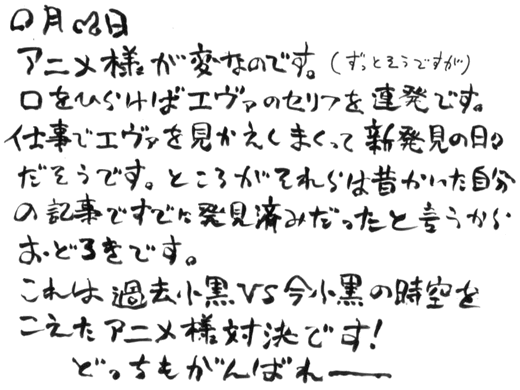 ○月○日
アニメ様が変なのです。(ずっとそうですが)
口をひらけばエヴァのセリフを連発です。
仕事でエヴァを見かえしまくって新発見の日々
だそうです。ところがそれらは昔かいた自分
の記事ですでに発見済みだったと言うから
おどろきです。
これは過去小黒VS今小黒の時空を
こえたアニメ様対決です!
どっちもがんばれー